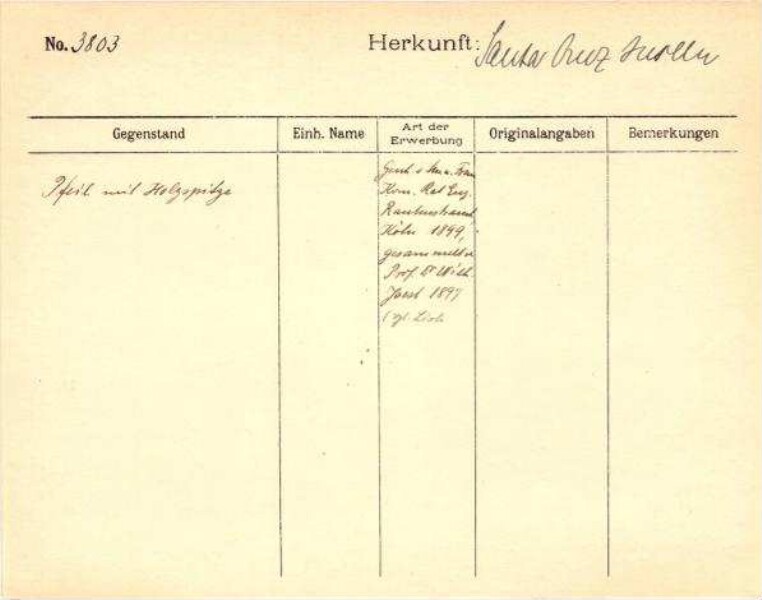 No. 3803
Herkunft: Santa Cruz Inseln
Gegenstand
Einh. Name
Art der
Erwerbung
Originalangaben
Bemerkungen
Pfeil mit Holzspitze
Gesch. v. Frau
Kom. Rat Eug.
Rautenstrauch
Köln 1899,
gesammelt v.
Prof. Dr Wilh.
Joest 1897